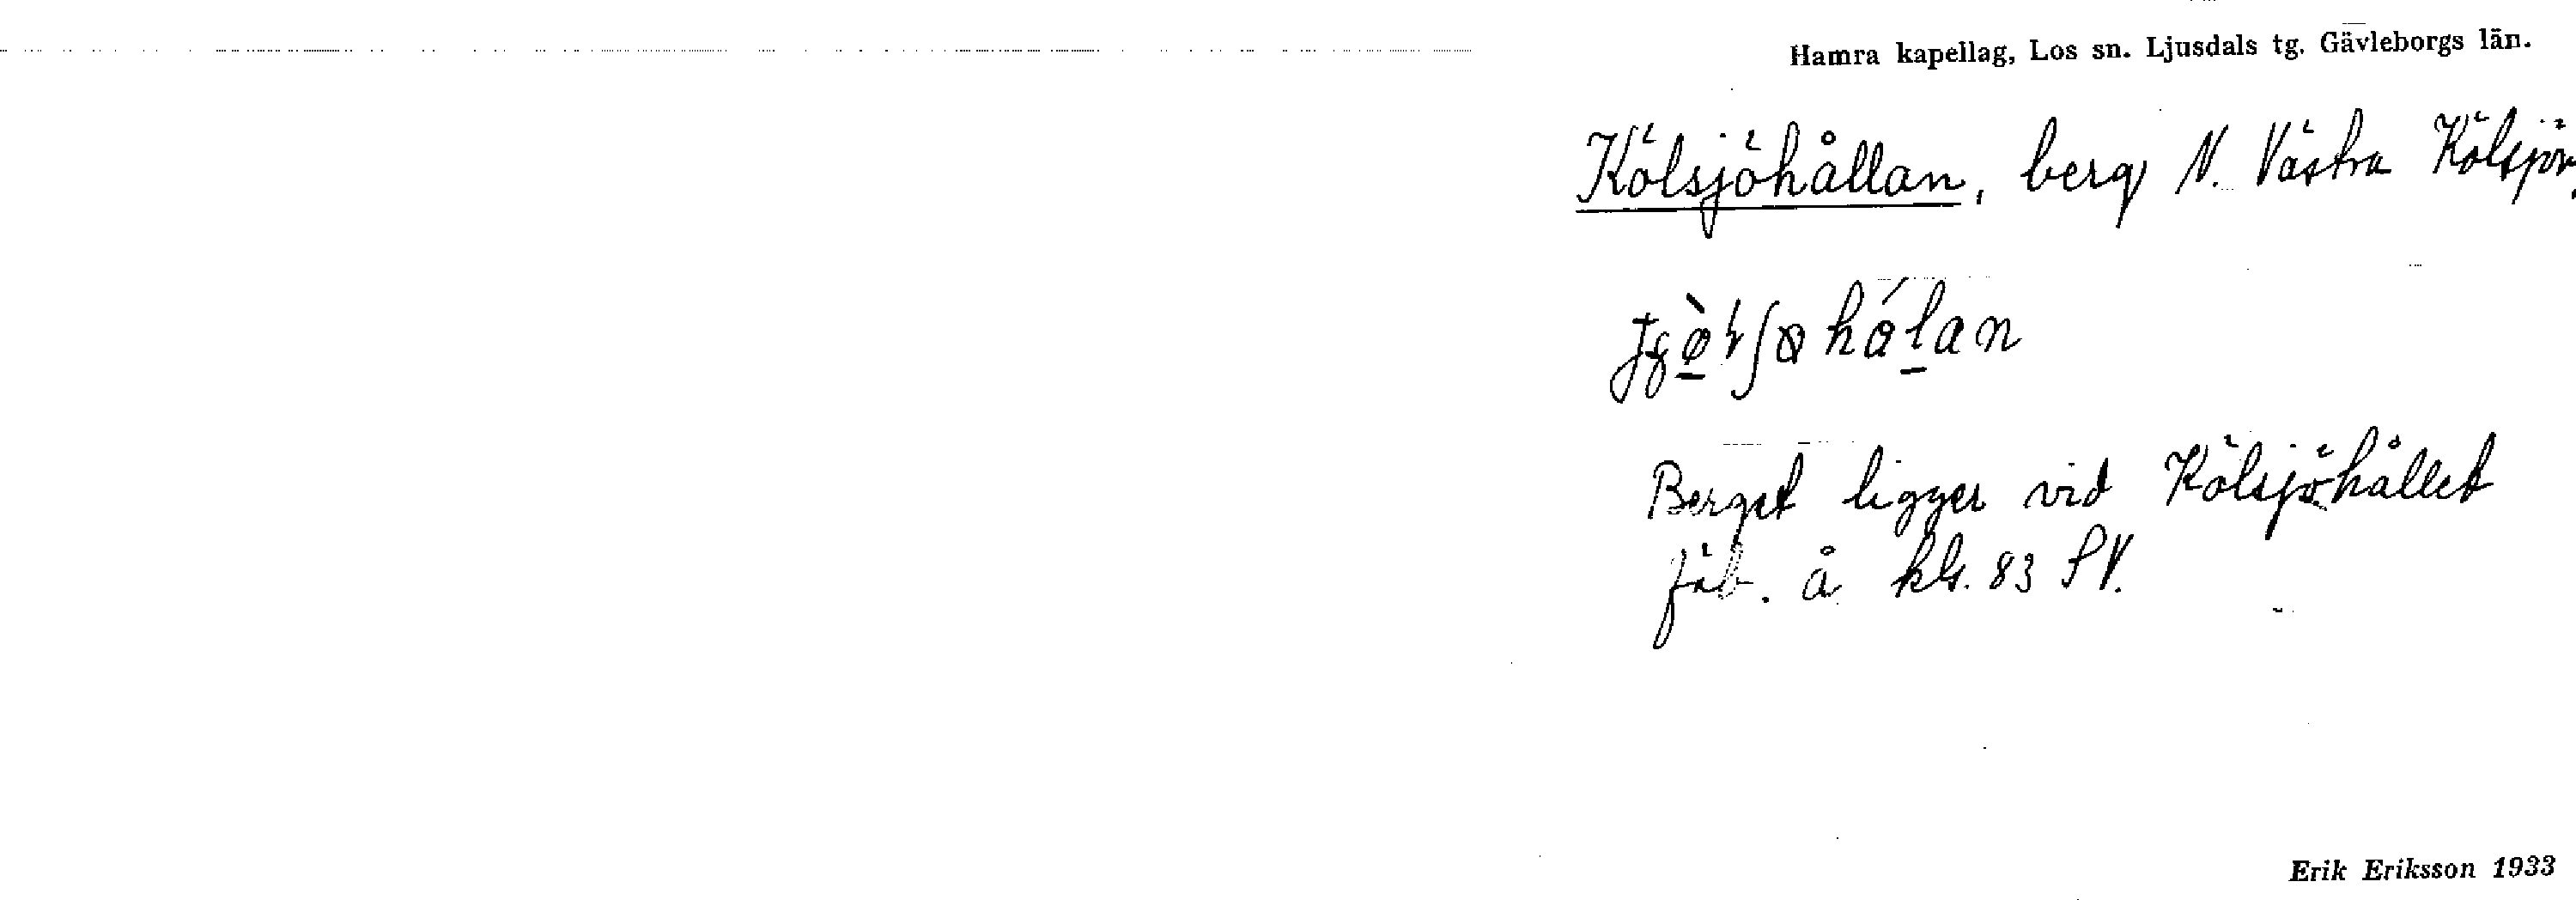 Hamra kapellag, Los sn. Ljusdals tg. Gävleborgs län.
Kölsjöhållan, berg N. Västra Kölsjön.
Berget ligger vid Kölsjöhållet
fäb. å kbl. 83 SV.
Erik Eriksson 1933